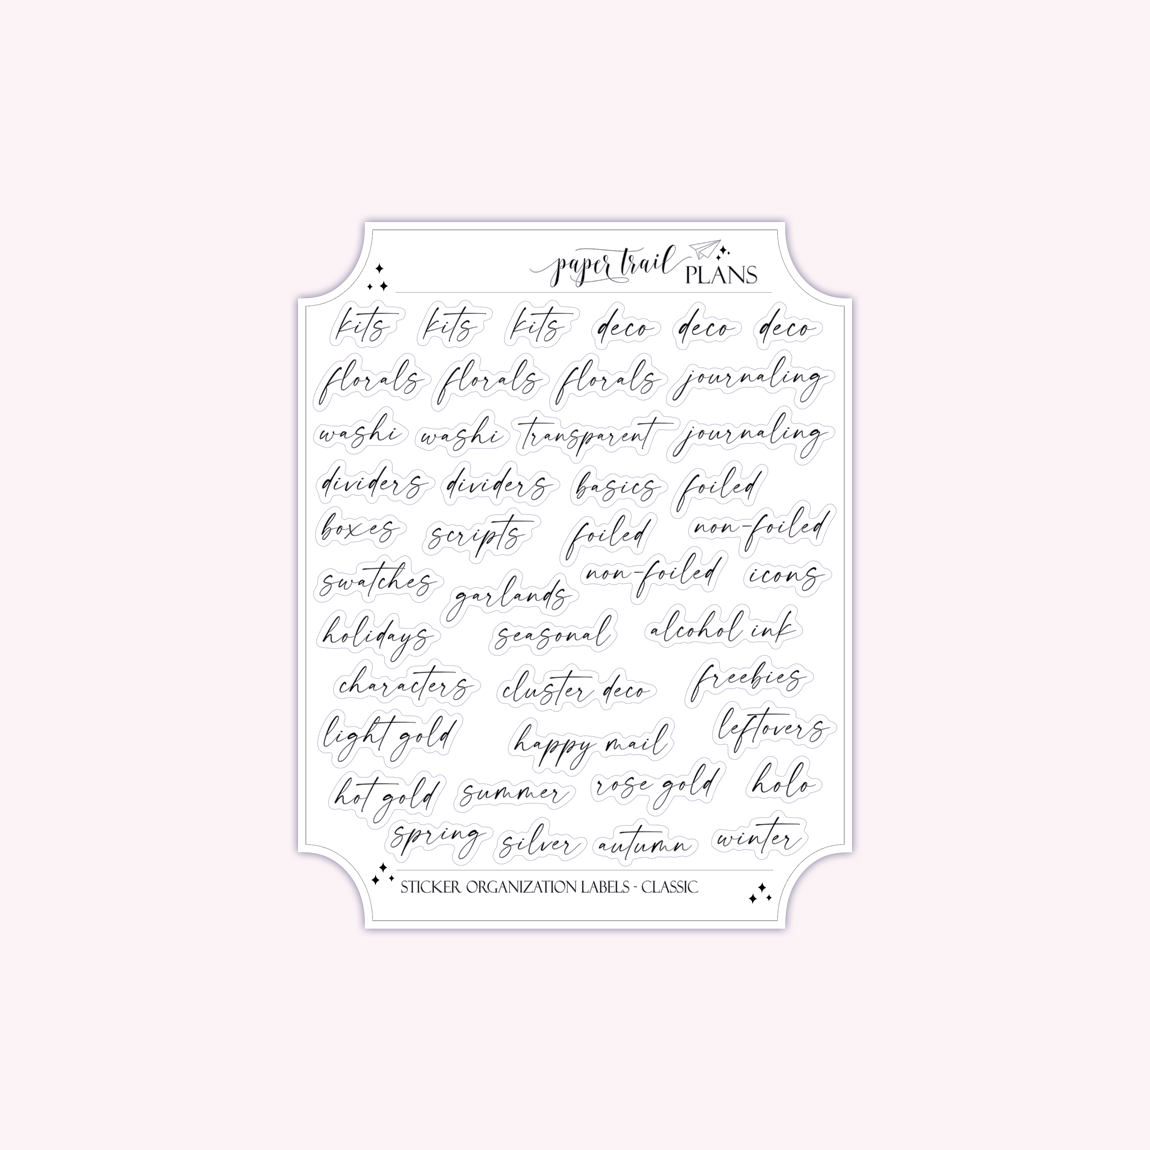 paper trail PLANS
kits kits kits deco deco deco
florals florals florals journaling
washi washi transparent journaling
dividers dividers basics foiled
boxes scripts foiled non-foiled
swatches garlands non-foiled icons
holidays seasonal alcohol ink
characters cluster deco freebies
light gold happy mail leftovers
hot gold summer rose gold holo
spring silver autumn winter
STICKER ORGANIZATION LABELS - CLASSIC